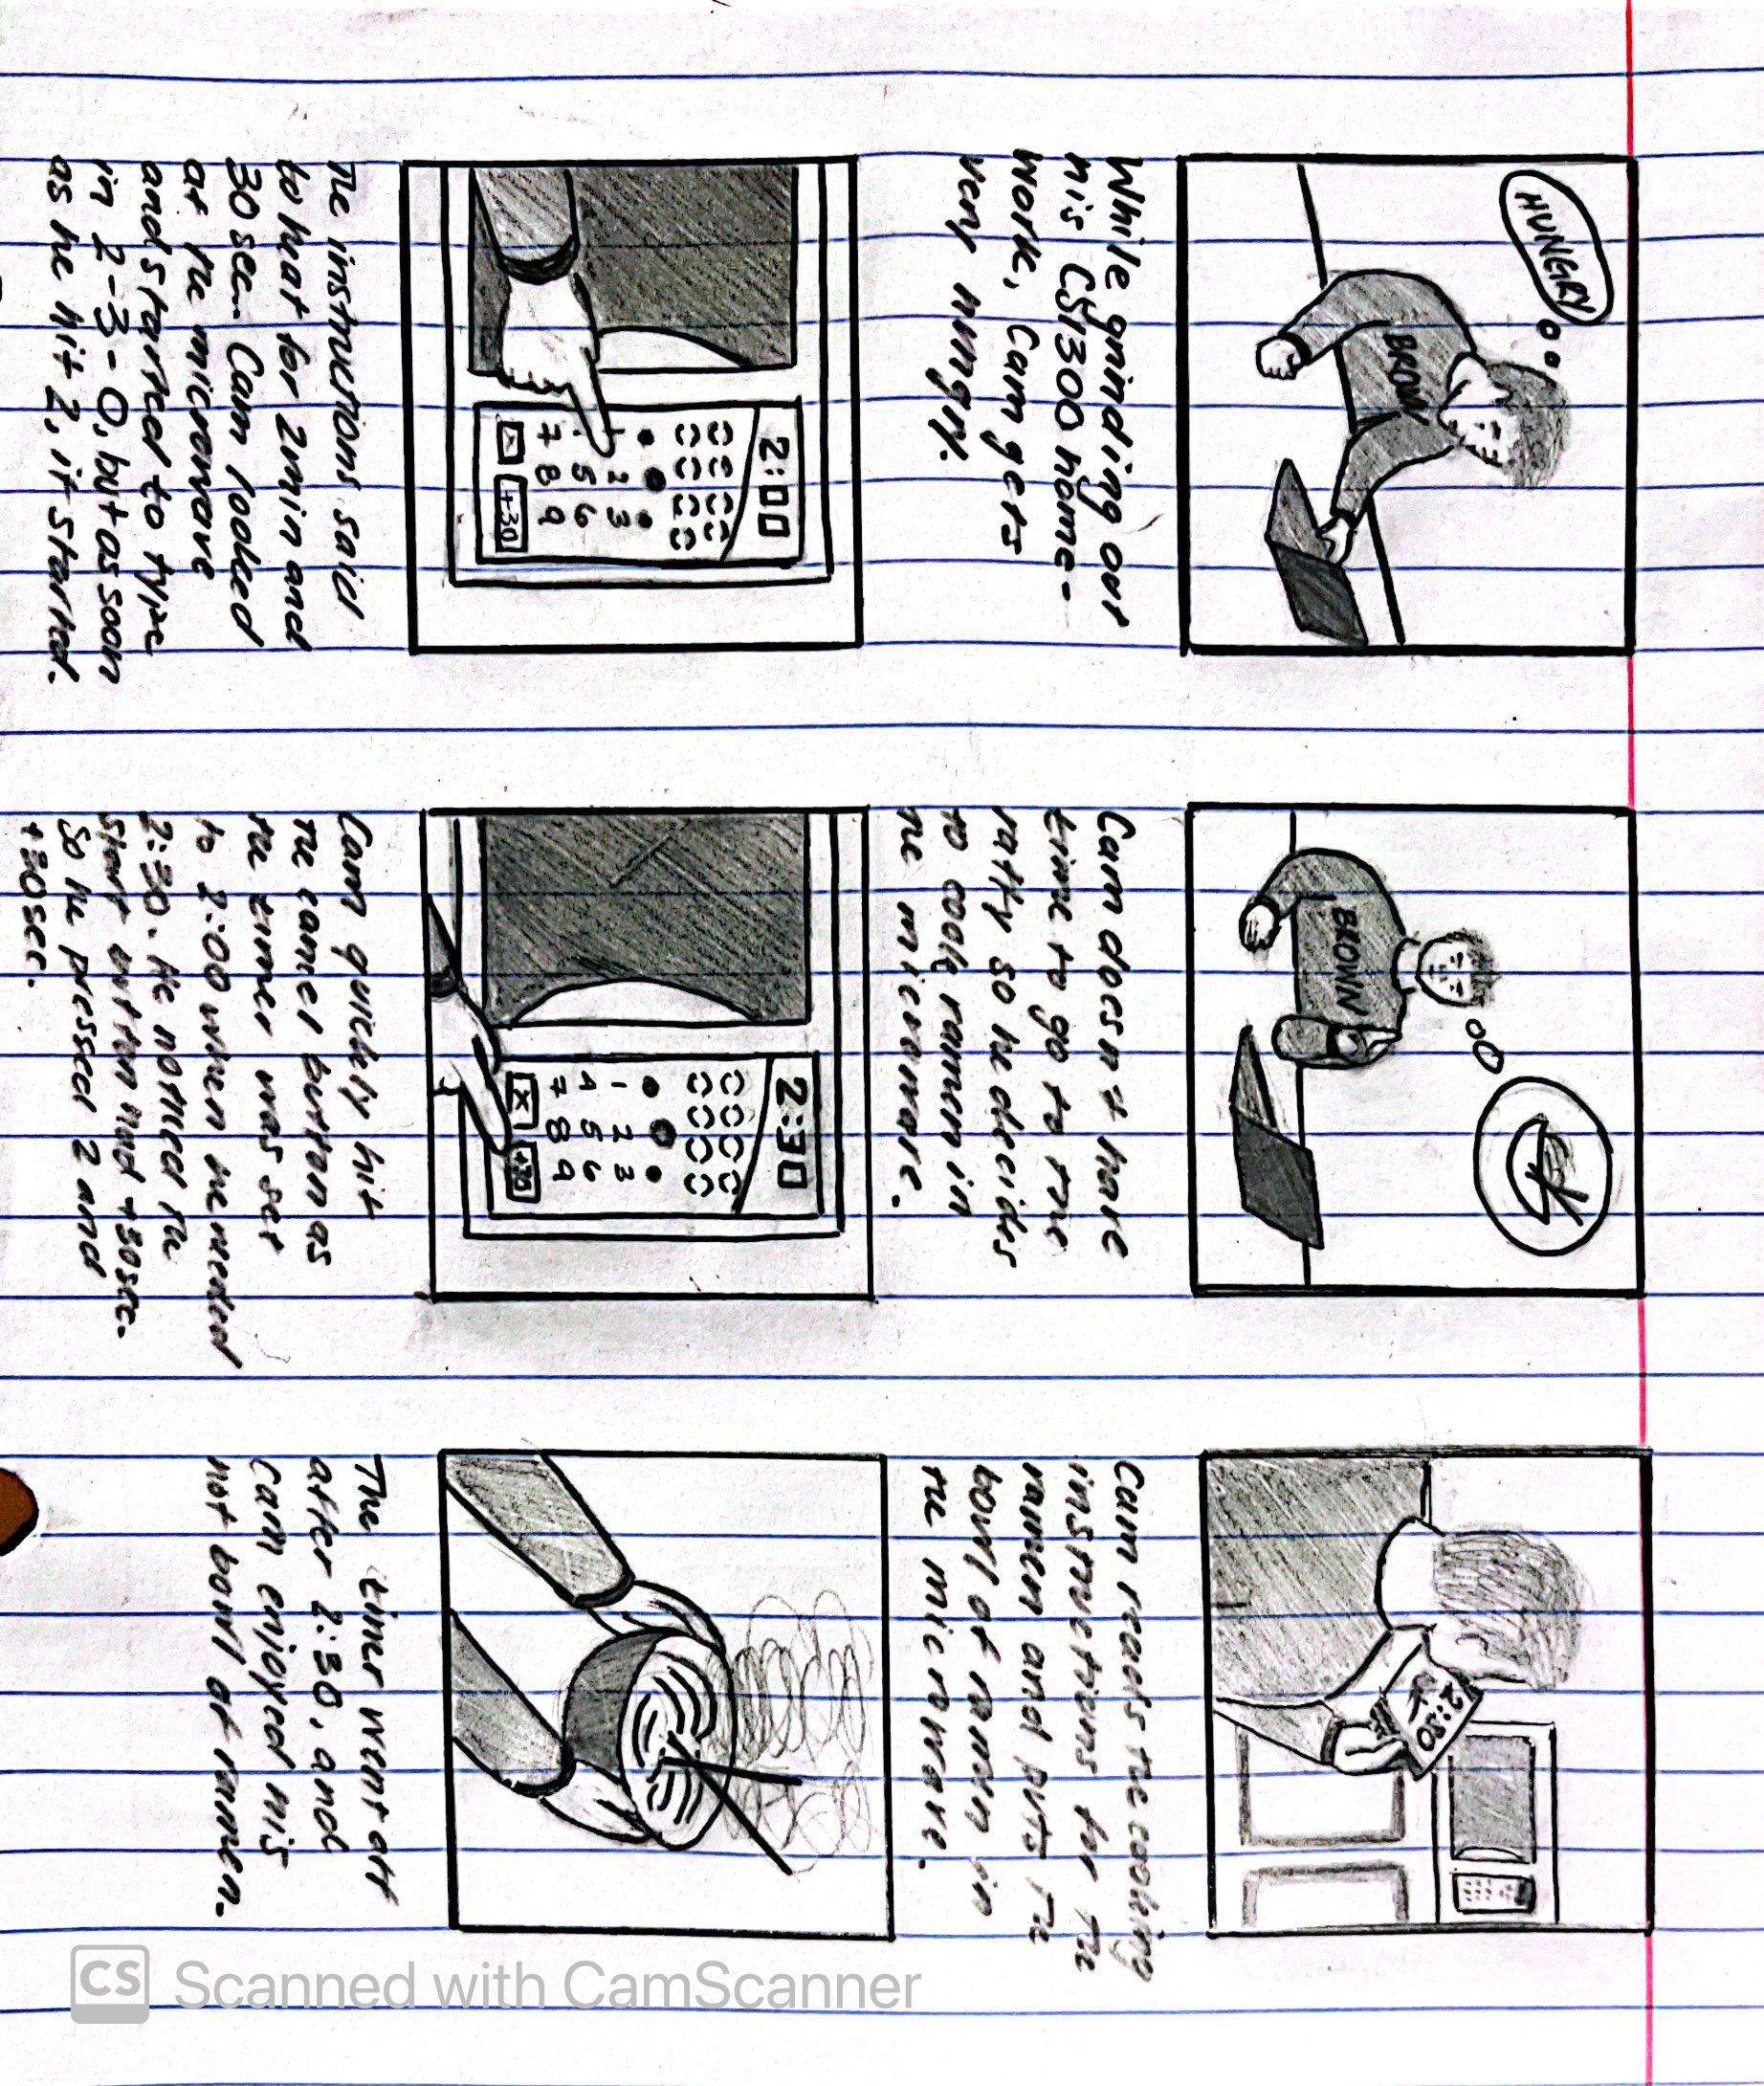 HUNGRY
BROWN
While grinding out
his CS1300 home-
work, Cam gets
very hungry.
BROWN
Cam doesn't have
time to go to the
ratty so he decides
to cook ramen in
the microwave.
2:30
Cam reads the cooking
instructions for the
ramen and puts the
bowl of ramen in
the microwave.
2:00
1 2 3
5 6
7 8 9
+30
The instructions said
to heat for 2 min and
30 sec. Cam looked
at the microwave
and started to type
in 2-3-0, but as soon
as he hit 2, it started.
2:30
1 2 3
4 5 6
7 8 9
X +30
Cam quickly hit
the cancel button as
the timer was set
to 2:00 when he needed
2:30. He noticed the
start button had +30sec.
So he pressed 2 and
+30sec.
The timer went off
after 2:30, and
Cam enjoyed his
hot bowl of ramen.
CS Scanned with CamScanner